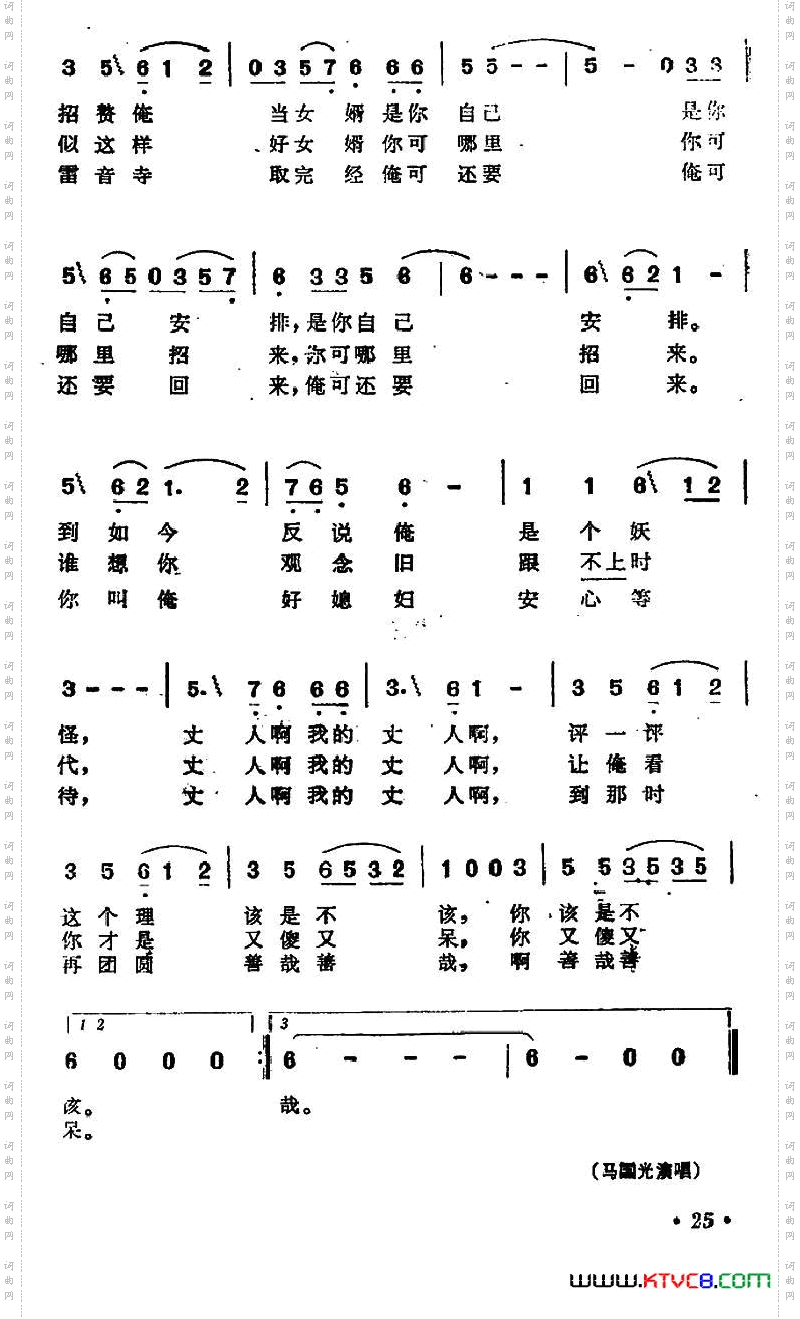 3 5 6 1 2 | 0 3 5 7 6 6 6 | 5 5 - - | 5 - 0 3 3
招赘俺 当女 婿是你 自己 是你
似这样 好女 婿你可 哪里 你可
雷音寺 取完 经俺可 还要 俺可
5 6 5 0 3 5 7 | 6 3 3 5 6 | 6 - - - | 6 6 2 1 -
自己 安 排,是你自己 安 排。
哪里 招 来,你可哪里 招 来。
还要 回 来,俺可还要 回 来。
5 6 2 1. 2 | 7 6 5 6 - | 1 1 6 1 2
到 如今 反说俺 是个妖
谁想你 观念旧 跟不上时
你叫俺 好媳妇 安心等
3 - - - | 5. 7 6 6 6 | 3. 6 1 - | 3 5 6 1 2
怪, 丈 人啊我的 丈 人啊, 评一评
代, 丈 人啊我的 丈 人啊, 让俺看
待, 丈 人啊我的 丈 人啊, 到那时
3 5 6 1 2 | 3 5 6 5 3 2 | 1 0 0 3 | 5 5 3 5 3 5
这个理 该是不 该, 你该是不
你才是 又傻又 呆, 你又傻又
再团圆 善哉善 哉, 啊善哉善
1 2 3
6 0 0 0 :| 6 - - - | 6 - 0 0
该。 哉。
呆。
(马国光演唱)
· 25 ·
www.KTVC8.com
词曲网